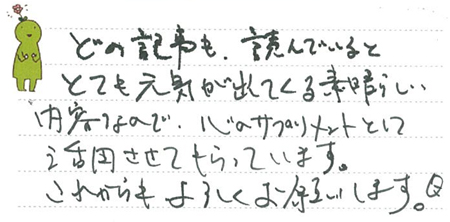 どの記事も、読んでいると
とても元気が出てくる素晴らしい
内容なので、心のサプリメントとして
活用させてもらっています。
これからもよろしくお願いします。